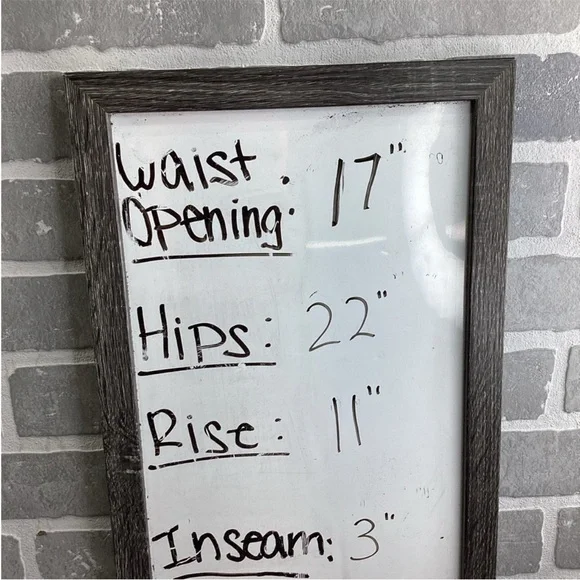 Waist
Opening: 17"
Hips: 22"
Rise: 11"
Inseam: 3"